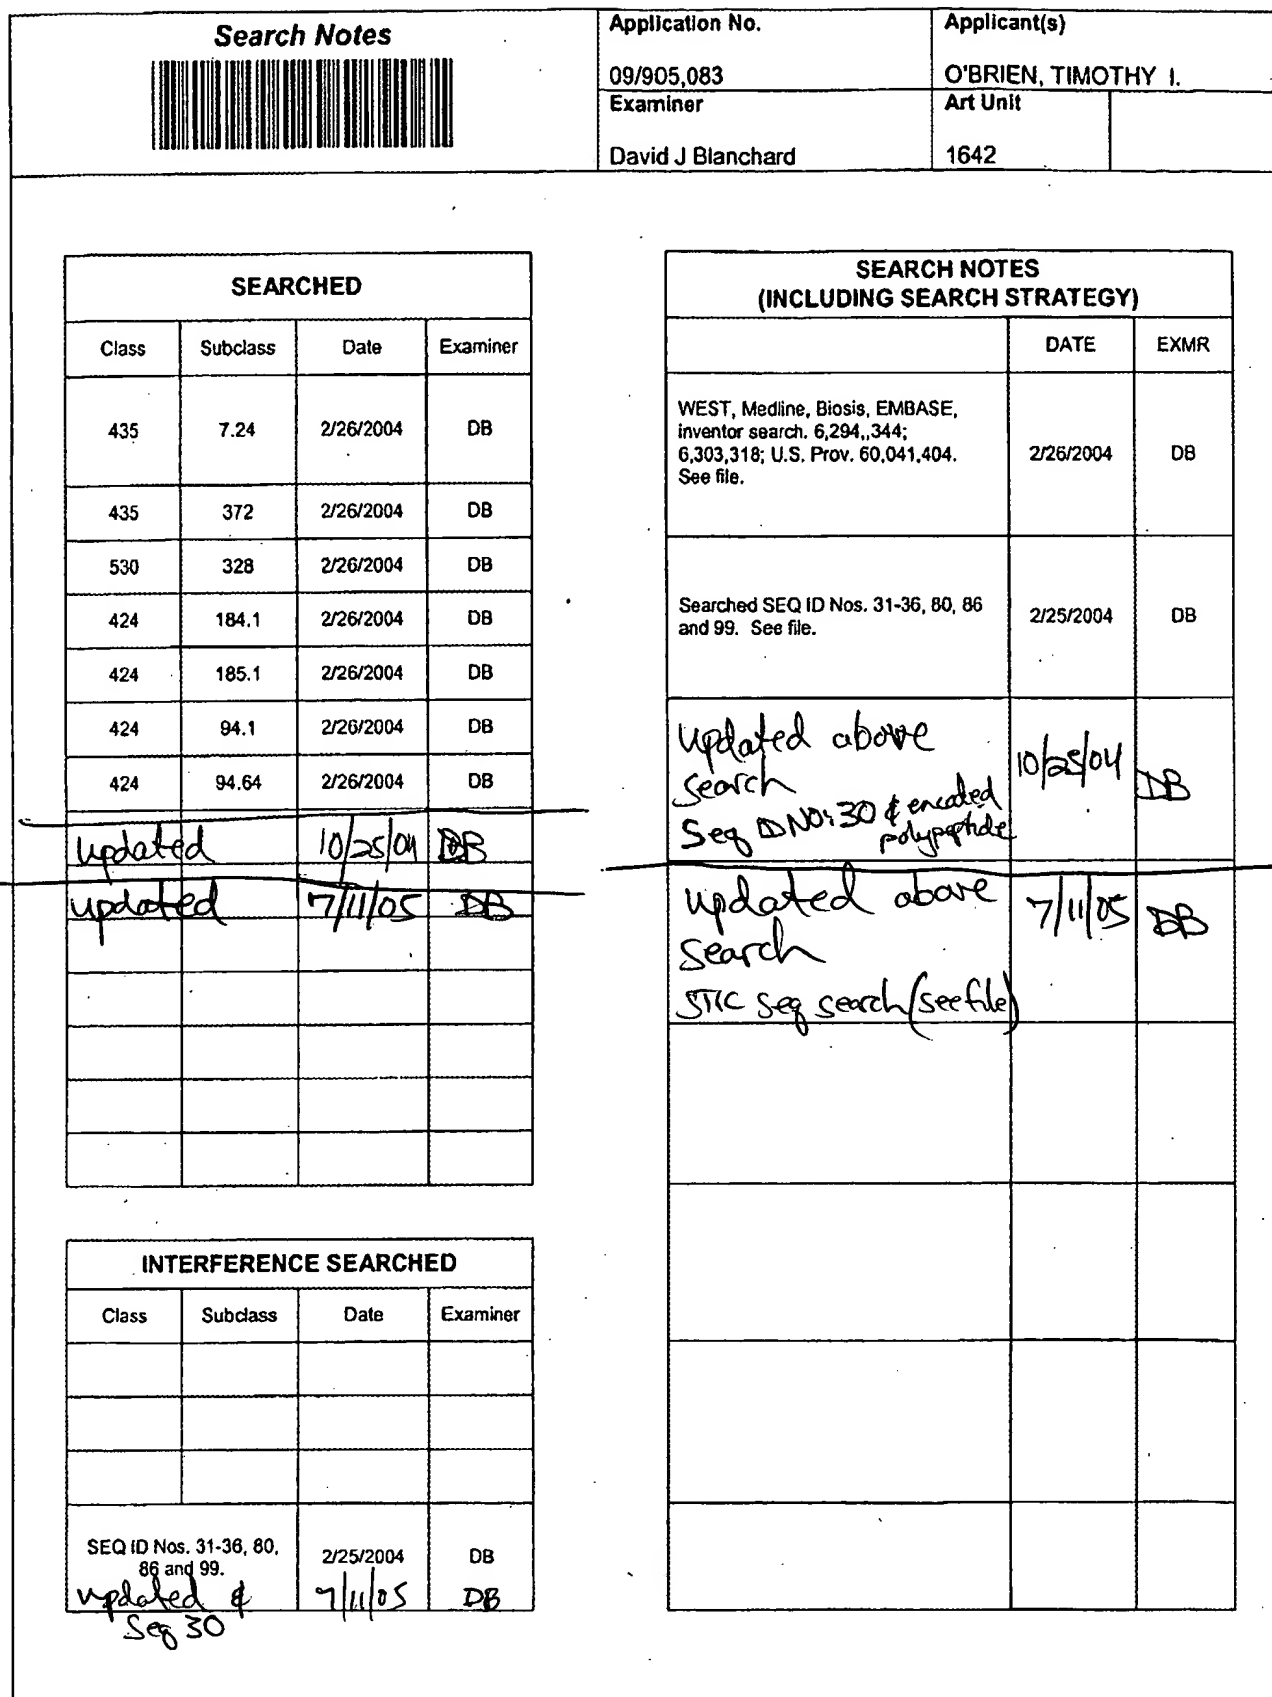 Search Notes
Application No.
Applicant(s)
09/905,083
O'BRIEN, TIMOTHY I.
Examiner
Art Unit
David J Blanchard
1642
SEARCHED
Class Subclass Date Examiner
435 7.24 2/26/2004 DB
435 372 2/26/2004 DB
530 328 2/26/2004 DB
424 184.1 2/26/2004 DB
424 185.1 2/26/2004 DB
424 94.1 2/26/2004 DB
424 94.64 2/26/2004 DB
updated 10/25/04 DB
updated 7/11/05 DB
INTERFERENCE SEARCHED
Class Subclass Date Examiner
SEQ ID Nos. 31-36, 80,
86 and 99.
2/25/2004 DB
updated & 7/11/05 DB
Seq 30
SEARCH NOTES
(INCLUDING SEARCH STRATEGY)
DATE EXMR
WEST, Medline, Biosis, EMBASE,
inventor search. 6,294,,344;
6,303,318; U.S. Prov. 60,041,404.
See file.
2/26/2004 DB
Searched SEQ ID Nos. 31-36, 80, 86
and 99. See file.
2/25/2004 DB
updated above
search
Seq ID NO: 30 & encoded
polypeptide
10/25/04 DB
updated above
search
STIC seq search (see file)
7/11/05 DB